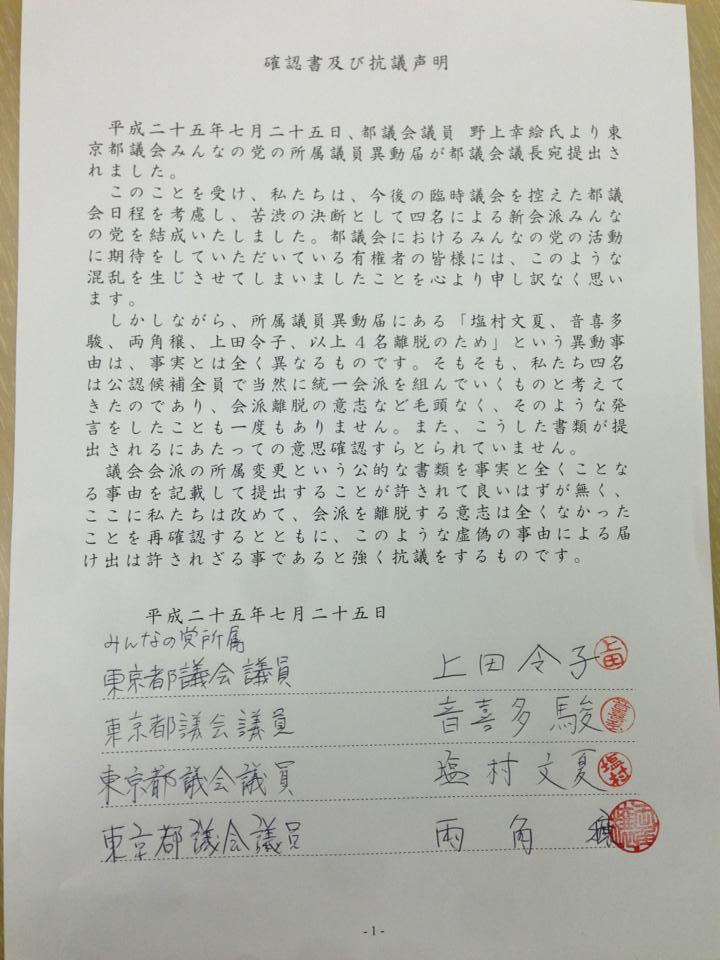 確認書及び抗議声明
平成二十五年七月二十五日、都議会議員 野上幸絵氏より東
京都議会みんなの党の所属議員異動届が都議会議長宛提出さ
れました。
このことを受け、私たちは、今後の臨時議会を控えた都議
会日程を考慮し、苦渋の決断として四名による新会派みんな
の党を結成いたしました。都議会におけるみんなの党の活動
に期待をしていただいている有権者の皆様には、このような
混乱を生じさせてしまいましたことを心より申し訳なく思い
ます。
しかしながら、所属議員異動届にある「塩村文夏、音喜多
駿、両角穣、上田令子、以上4名離脱のため」という異動事
由は、事実とは全く異なるものです。そもそも、私たち四名
は公認候補全員で当然に統一会派を組んでいくものと考えて
きたのであり、会派離脱の意志など毛頭なく、そのような発
言をしたことも一度もありません。また、こうした書類が提
出されるにあたっての意思確認すらとられていません。
議会会派の所属変更という公的な書類を事実と全くことな
る事由を記載して提出することが許されて良いはずが無く、
ここに私たちは改めて、会派を離脱する意志は全くなかった
ことを再確認するとともに、このような虚偽の事由による届
け出は許されざる事であると強く抗議をするものです。
平成二十五年七月二十五日
みんなの党所属
東京都議会議員 上田令子 上田
東京都議会議員 音喜多駿
東京都議会議員 塩村文夏 塩村
東京都議会議員 両角穣
- 1 -